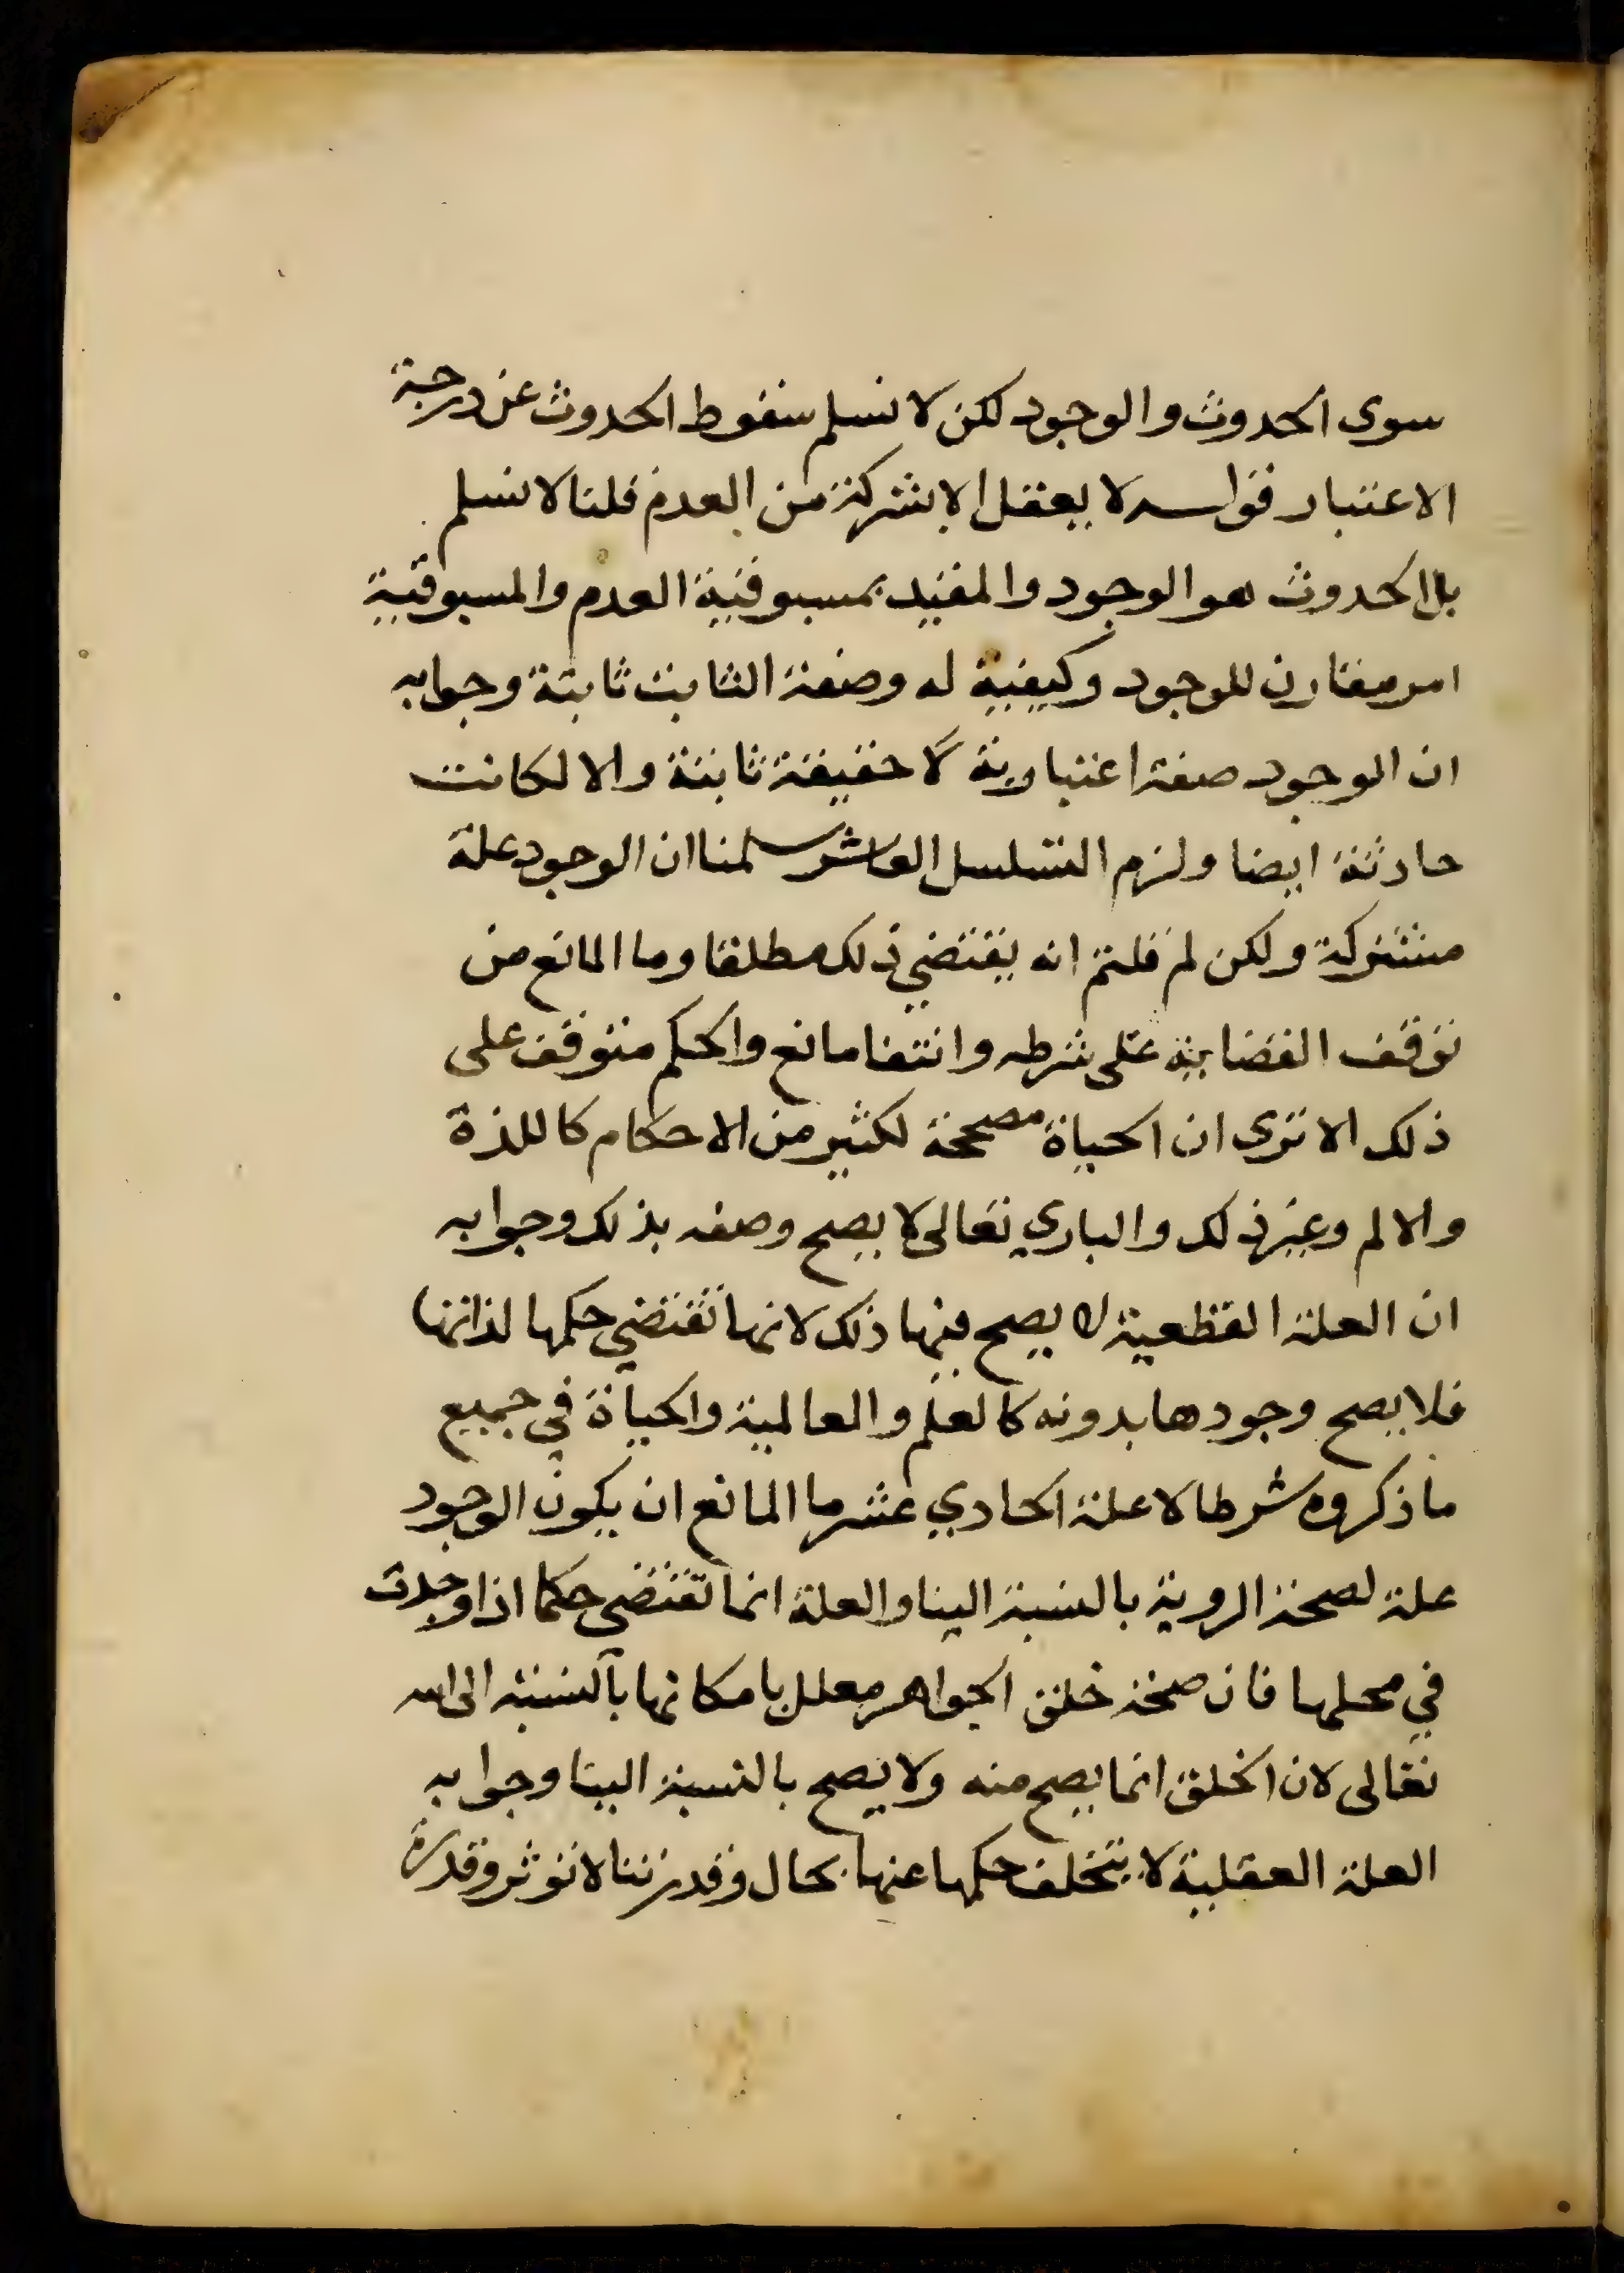 سوى الحدوث والوجود لكن لا نسلم سقوط الحدوث عن درجة
الاعتبار قوله لا يعقل الا بشركة من العدم قلنا لا نسلم
بل الحدوث هو الوجود والمقيد بمسبوقية العدم والمسبوقية
امر مقارن للوجود وكيفية له وصفة الثابت ثابتة وجوابه
ان الوجود صفة اعتبارية لا حقيقة ثابتة والا لكانت
حادثة ايضا ولزم التسلسل العاشر سلمنا ان الوجود علة
مشتركة ولكن لم قلتم انه يقتضي ذلك مطلقا وما المانع من
توقف اقتضايه على شرطه وانتفا مانع والحكم متوقف على
ذلك الا ترى ان الحياة مصححة لكثير من الاحكام كاللذة
والالم وغير ذلك والباري تعالى لا يصح وصفه بذلك وجوابه
ان العلة القطعية لا يصح فيها ذلك لانها تقتضي حكمها لذاتها
فلا يصح وجودها بدونه كالعلم والعالمية والحياة في جميع
ما ذكروه شرطا لا علة الحادي عشر ما المانع ان يكون الوجود
علة لصحة الروية بالنسبة الينا والعلة انما تقتضي حكما اذا وجدت
في محلها فان صحة خلق الجواهر معلل بامكانها بالنسبة الى الله
تعالى لان الخلق انما يصح منه ولا يصح بالنسبة الينا وجوابه
العلة العقلية لا يتخلف حكمها عنها بحال وقدرتنا لا توثر وقدرة